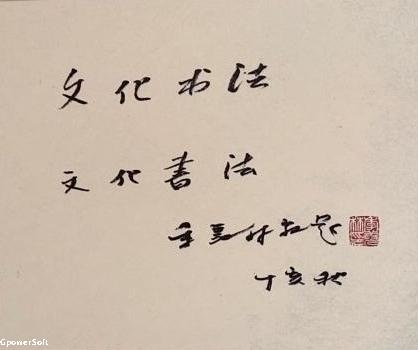 文化书法
文化書法
季羡林敬题
丁亥秋
GpowerSoft